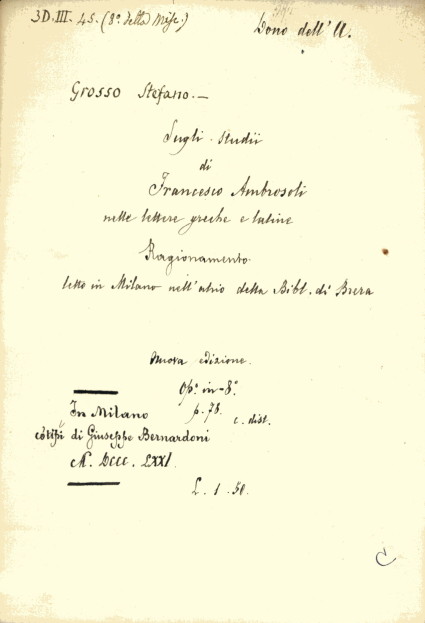 3D.III.45.(8º della Misc.)
Dono dell'A.
Grosso Stefano.—
Sugli studii
di
Francesco Ambrosoli
nelle lettere greche e latine
Ragionamento
letto in Milano nell'atrio della Bibl. di Brera
Nuova edizione.
Opº in-8º
p. 78. c. dist.
In Milano
cotipi di Giuseppe Bernardoni
M. DCCC. LXXI.
L. 1.50.
C